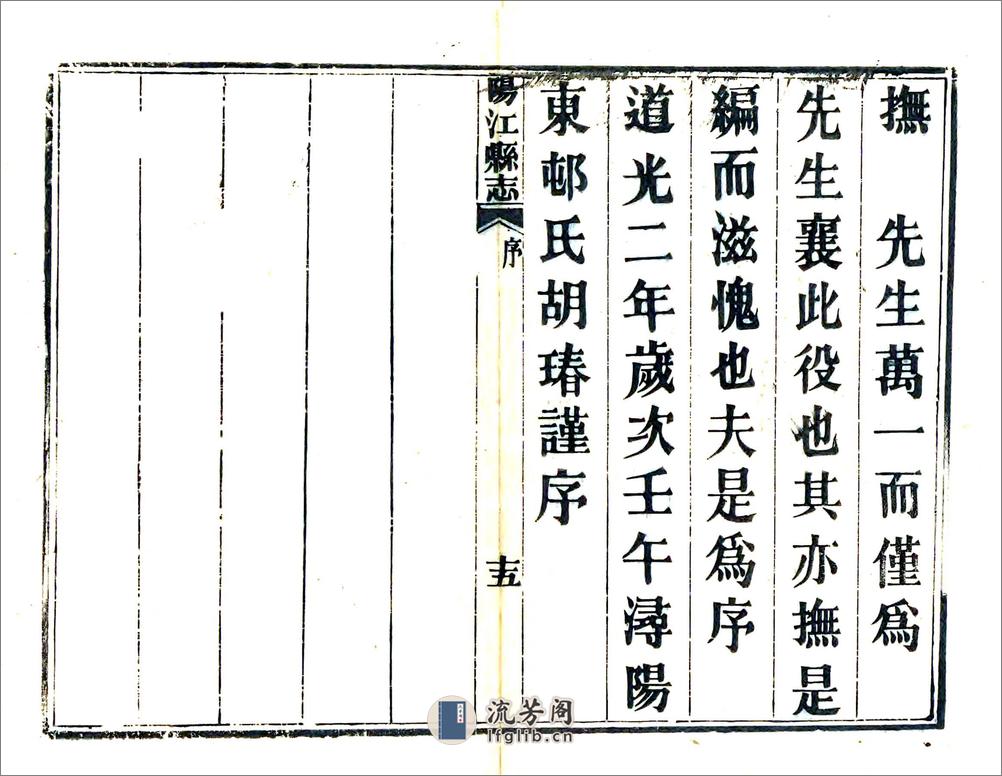 撫　先生萬一而僅爲
先生襄此役也其亦撫是
編而滋愧也夫是爲序
道光二年歲次壬午潯陽
東邨氏胡瑃謹序
陽江縣志
序
十五
流芳阁
lfglib.cn